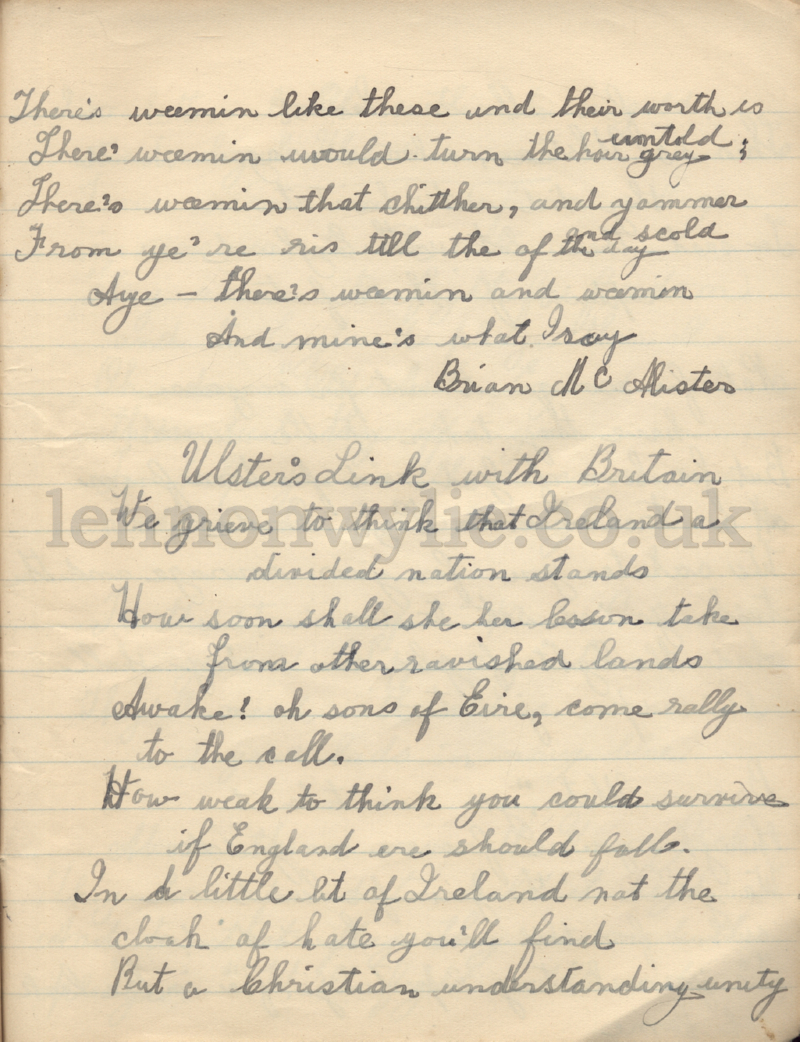 There's weemin like these and their worth is
untold;
There' weemin would turn the hair grey
There's weemin that chitther, and yammer
and scold
From ye're ris till the of the day
Aye – there's weemin and weemin
And mine's what I say
Brian Mc Alister
Ulster's Link with Britain
We grieve to think that Ireland a
divided nation stands
How soon shall she her lesson take
from other ravished lands
Awake! oh sons of Eire, come rally
to the call.
How weak to think you could survive
if England ere should fall.
In a little bit of Ireland not the
cloak of hate you'll find
But a Christian understanding unity
lennonwylie.co.uk